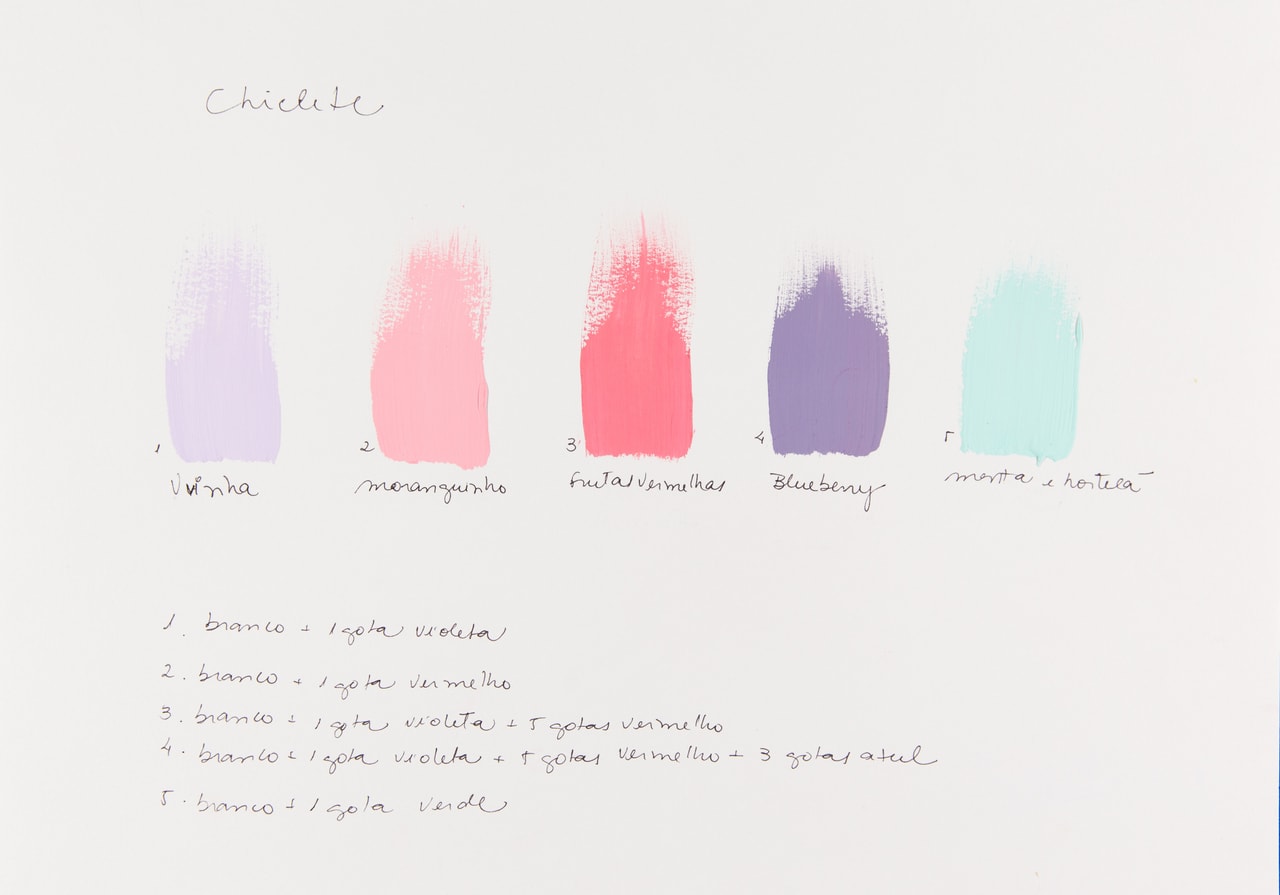 Chiclete
1 2 3 4 5
Uvinha moranguinho frutas vermelhas Blueberry menta e hortelã
1. branco + 1 gota violeta
2. branco + 1 gota vermelho
3. branco + 1 gota violeta + 5 gotas vermelho
4. branco + 1 gota violeta + 5 gotas vermelho + 3 gotas azul
5. branco + 1 gota verde